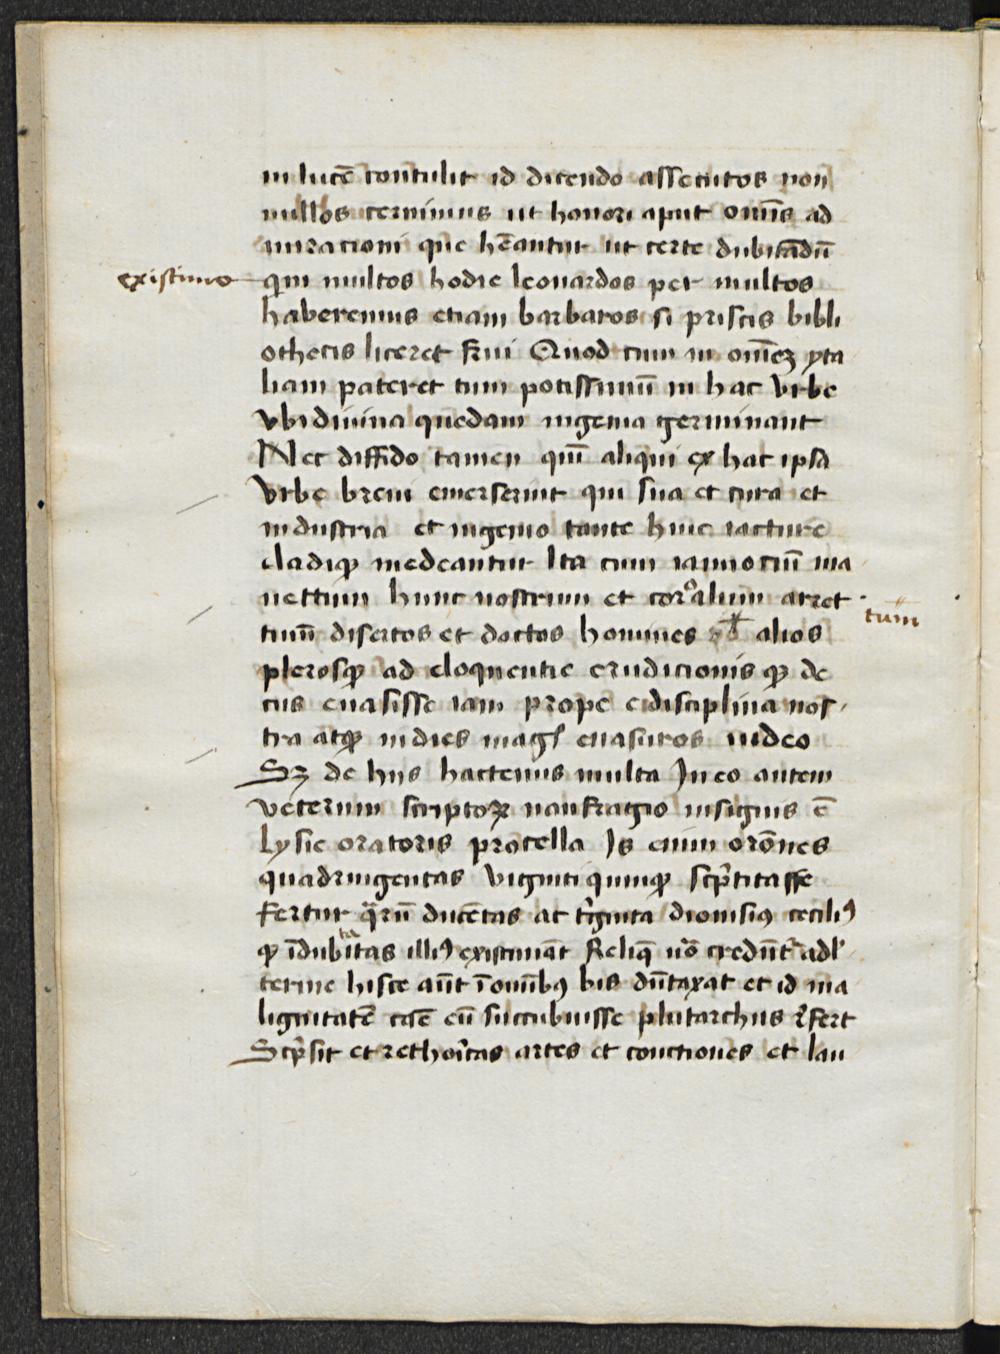 in lucē contulit id dicendo assecutos non
nullos cernimus ut honori aput omīs ad
miracioni que hēantur ut certe dubitādū
existimo
quin multos hodie leonardos per multos
haberemus etiam barbaros si priscis bibli
othecis liceret frui Quod cum in omēꝫ yta
liam pateret tum potissimū in hac vrbe
vbi diuina quedam ingenia germinant
Nec diffido tamen quī aliqui ex hac ipsa
vrbe breui emerserint qui sua et cura et
industria et ingenio tante huic iacture
cladiqꝫ medeantur Ita cum iannociū ma
nettum hunc nostrum et corᵒalium arret
tum
tinū disertos et doctos homines alios
plerosqꝫ ad eloquentie erudicionis qꝫ de
cus euasisse iam prope e disciplina nos
tra atqꝫ indies magꝭ euasuros uideo
Sꝫ de hijs hactenus multa In eo autem
veterum scriptoꝝ naufragio insignis ē
lysie oratoris procella Is enim orōnes
quadringentas viginti quinqꝫ scptitasse
fertur qrū ducētas ac triginta dionisiꝰ ceciliꝰ
qꝫ īdubitatas illiꝰ existimāt Reliqꝫ uo credūt adl
terine hisce aūt ī omībꝰ bis dūtaxat et id ma
lignitatē cāe eū succubuisse plutarchus rfert
Scpsit et rethoricas artes et conctiones et lau